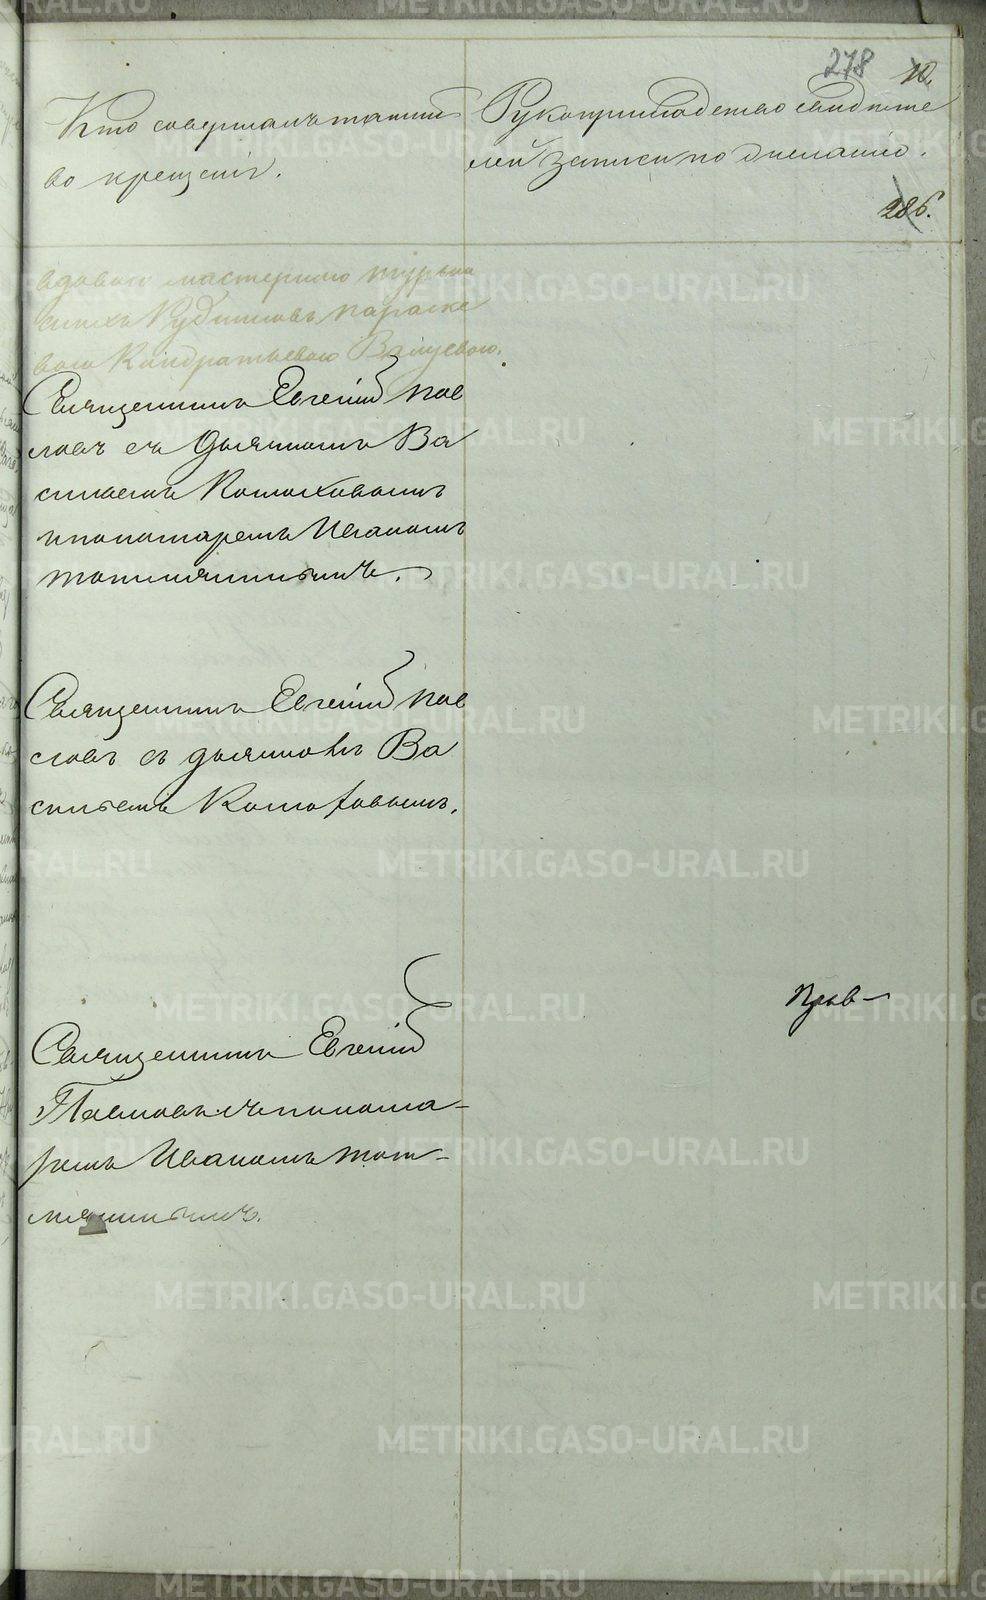 278 10.
Кто совершалъ таинст
во крещенія.
Рукоприкладство свидѣте
лей записи по желанію.
286.
вдовою мастерскою Турьин
скихъ Рудниковъ Параске
вою Кондратьевою
Священникъ Евгеній Пав
ловъ съ Дьячкомъ Ва
сильемъ
и пономаремъ Иваномъ
Священникъ Евгеній Пав
ловъ съ дьячкомъ Ва
сильемъ
Священникъ Евгеній
Павловъ съ понома-
ремъ Иваномъ Топ-
METRIKI.GASO-URAL.RU